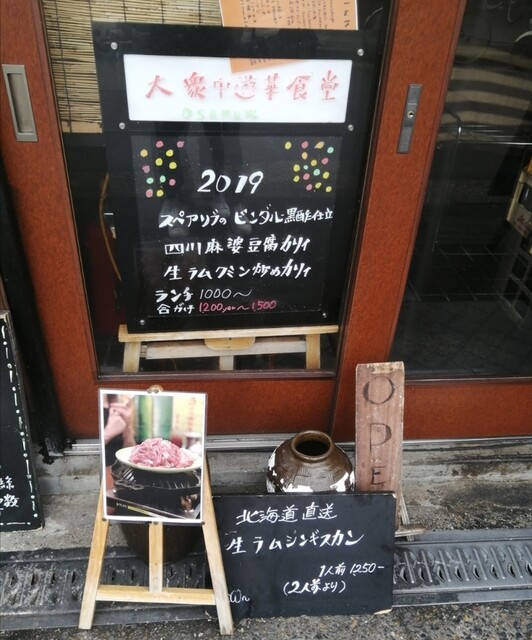 大衆中遊華食堂
2019
スペアリブの ビンダルー黒酢仕立
四川麻婆豆腐カリィ
生ラムクミン炒めカリィ
ランチ 1000〜
合がけ 1200yen〜1500
OPE
北海道直送
生ラムジンギスカン
1人前 1250-
(2人等より)
絲
数